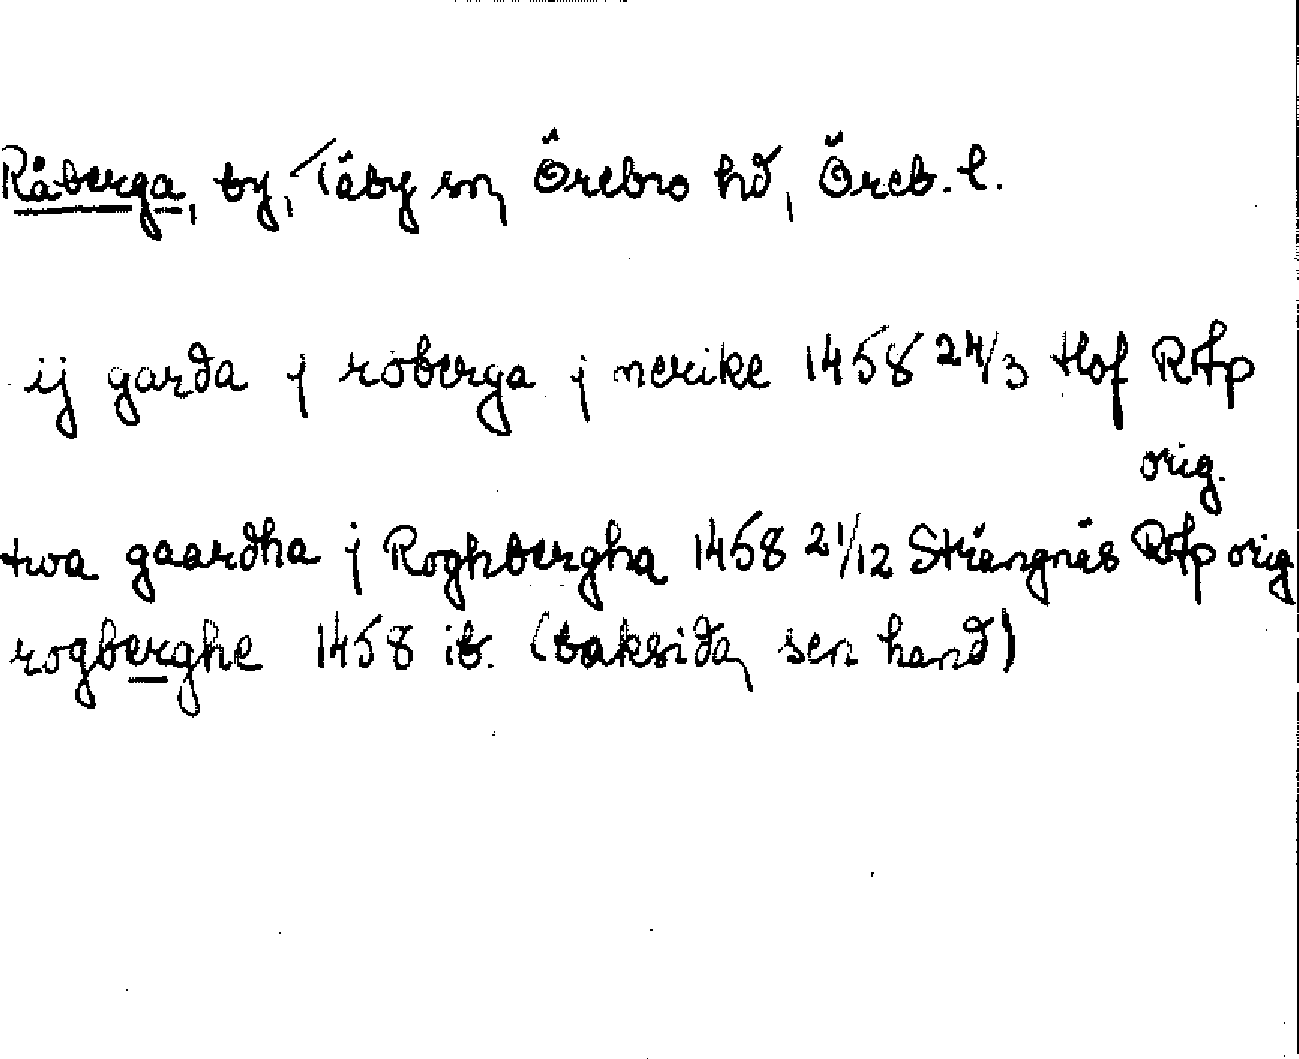 Råberga, by, Täby sn, Örebro hd, Öreb. l.
ij garda j roberga j nerike 1458 24/3 Hof RAp
orig.
twa gaardha j Roghbergha 1458 21/12 Strängnäs RAp orig
rogberghe 1458 ib. (baksida, sen hand)